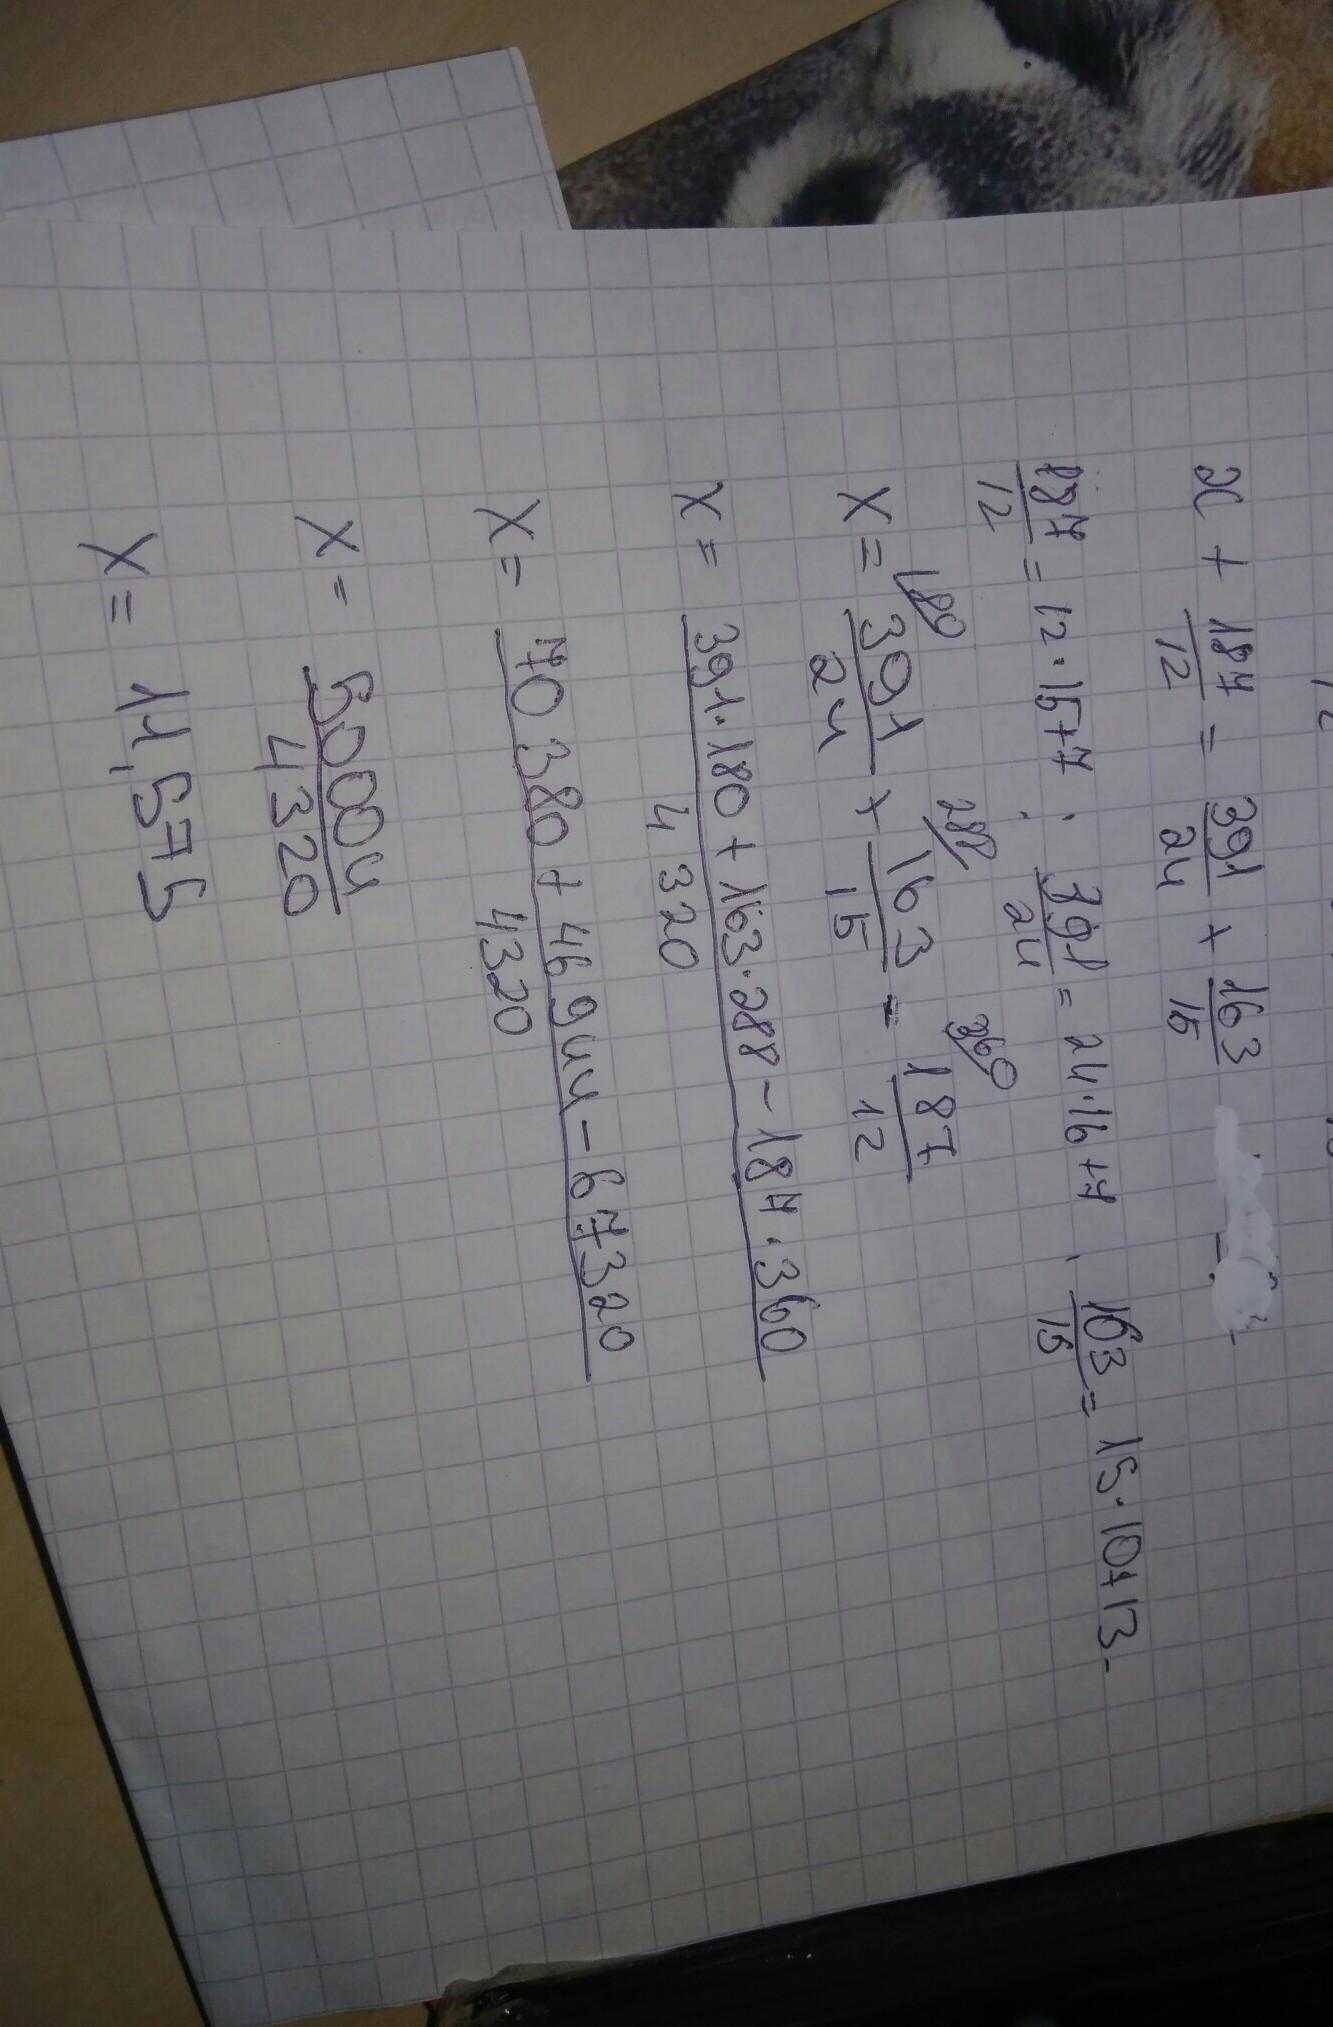 x + 187/12 = 391/24 + 163/15
187/12 = 12·15+7 ; 391/24 = 24·16+7 ; 163/15 = 15·10+13-
180 288 360
x = 391/24 + 163/15 - 187/12
x = 391·180 + 163·288 - 187·360 / 4320
x = 70380 + 46944 - 67320 / 4320
x = 50004 / 4320
x = 11,575